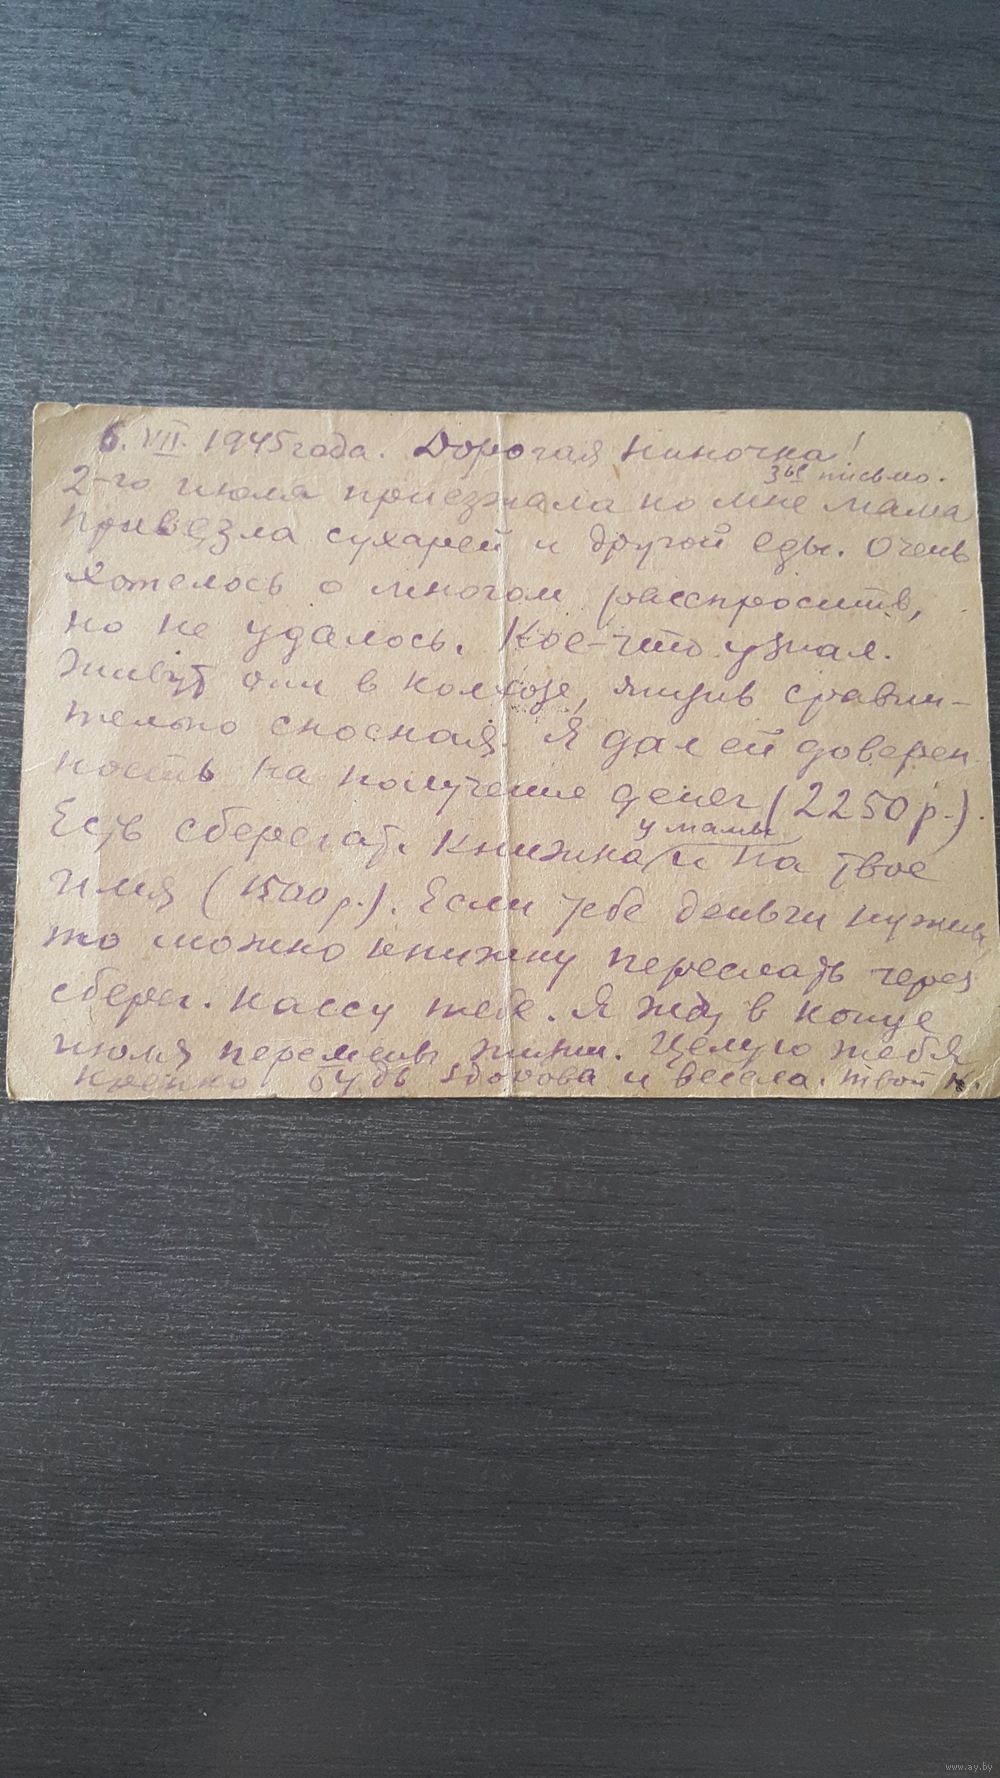 6. VII. 1945 года. Дорогая Ниночка!
3ье письмо.
2-го июля приезжала ко мне мама
привезла сухарей и другой еды. Очень
хотелось о многом расспросить,
но не удалось. Кое-что узнал.
Живут они в колхозе, жизнь сравни-
тельно сносная. Я дал ей доверен
ность на получение денег (2250 р.).
у мамы
Есть сберегат. книжка и на твое
имя (1500 р.). Если тебе деньги нужны,
то можно книжку переслать через
сберег. кассу тебе. Я жду в конце
июля перемены жизни. Целую тебя
крепко будь здорова и весела. твой К.
www.ay.by